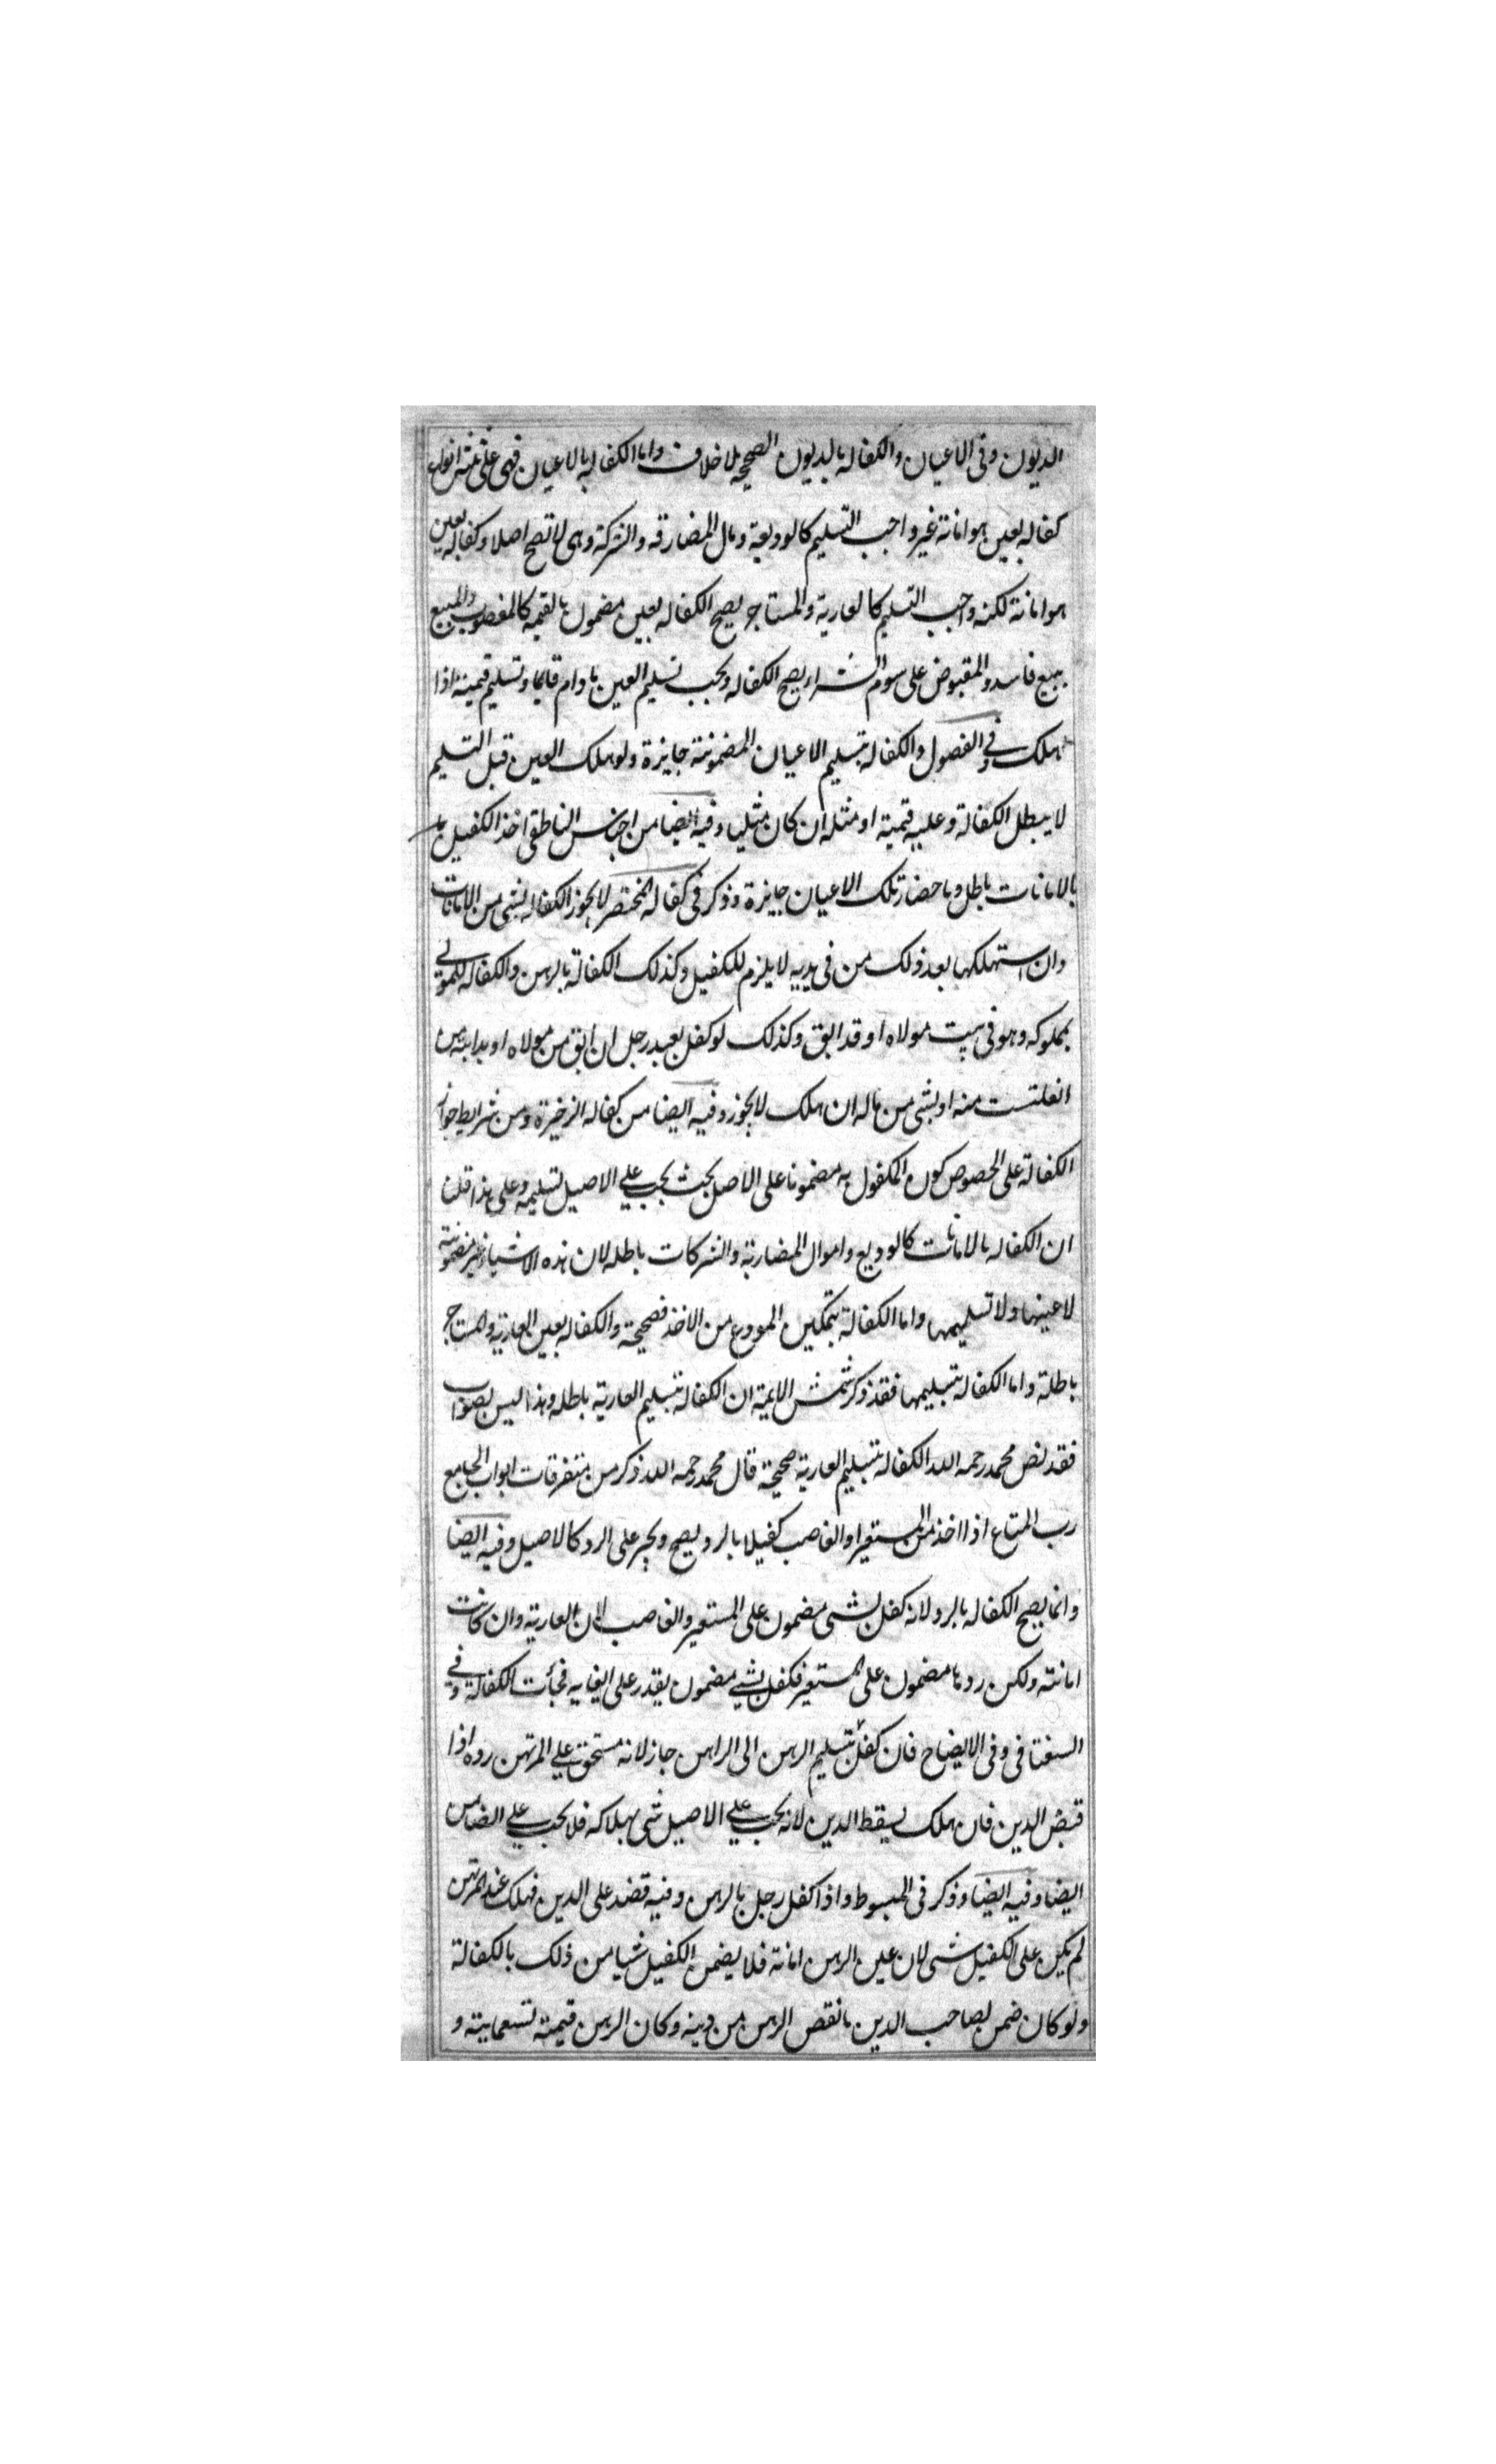 الديون وفى الاعيان والكفاله بالديون الصحيحه بلا خلاف واما الكفاله بالاعيان فهى على ثلثه انواع
كفاله بعين هو امانة غير واجب التسليم كالوديعة ومال المضاربه والشركة وهى لا تصح اصلا وكفاله بعين
هو امانة لكنه واجب التسليم كالعارية والمستاجر يصح الكفاله بعين مضمون بالقيمه كالمغصوب والمبيع
ببيع فاسد والمقبوض على سوم الشراء يصح الكفاله ويجب تسليم العين مادام قايما وتسليم قيمته اذا
هلك وفى الفصول والكفاله بتسليم الاعيان المضمونة جايزة ولو هلك العين قبل التسليم
لا يبطل الكفالة وعليه قيمته او مثله ان كان مثليا وفيه ايضا من اجناس الناطفى اخذ الكفيل
بالامانات باطل وباحضار تلك الاعيان جايزة وذكر فى كفالة المختصر لا يجوز الكفاله بشى من الامانات
وان استهلكها بعد ذلك من فى يديه لا يلزم للكفيل وكذلك الكفالة بالرهن والكفاله للمولى
بمملوكه وهو فى بيت مولاه او قد ابق وكذلك لو كفل بعبد رجل ان ابق من مولاه او بدابته من
انفلتت منه او بشى من ماله ان هلك لا يجوز وفيه ايضا من كفاله الذخيرة ومن شرايط جواز
الكفالة على الخصوص كون المكفول به مضمونا على الاصل بحيث يجب على الاصيل تسليمه وعلى هذا قلنا
ان الكفاله بالامانات كالوديع واموال المضاربة والشركات باطله لان هذه الاشياء غير مضمونة
لا عينها ولا تسليمها واما الكفالة بتمكين المودع من الاخذ فصحيحة والكفاله بعين العارية والمستاجر
باطلة واما الكفاله بتسليمها فقد ذكر شمس الايمة ان الكفاله بتسليم العارية باطله وهذا ليس بصواب
فقد نص محمد رحمه الله الكفاله بتسليم العارية صحيحة قال محمد رحمه الله ذكر من متفرقات ابواب الجامع
رب المتاع اذا اخذ من المستعير او الغاصب كفيلا بالرد يصح ويجبر على الرد كالاصيل وفيه ايضا
وانما يصح الكفاله بالرد لانه كفل بشى مضمون على المستعير والغاصب لان العارية وان كانت
امانته ولكن ردها مضمون على المستعير فكفل بشى مضمون يقدر على ايفايه فجأت الكفالة وفى
السغناقى وفى الايضاح فان كفل بتسليم الرهن الى الراهن جاز لانه مستحق على المرتهن رده اذا
قبض الدين فان هلك يسقط الدين لانه يجب على الاصيل شى بهلاكه فلا يجب على الضامن
ايضا وفيه ايضا وذكر فى المبسوط واذا كفل رجل بالرهن وفيه فضل على الدين فهلك عند المرتهن
لم يكن على الكفيل شى لان عين الرهن امانة فلا يضمن الكفيل شيا من ذلك بالكفالة
ولو كان ضمن لصاحب الدين ما نقص الرهن من دينه وكان الرهن قيمته تسعماية و